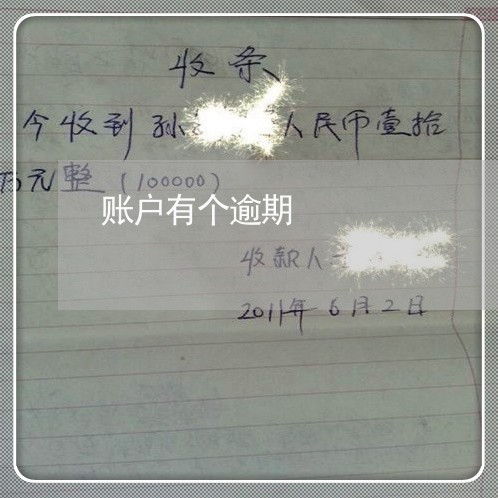 收条
今收到孙人民币壹拾
万元整(100000)
账户有个逾期
收款人
2011年6月2日